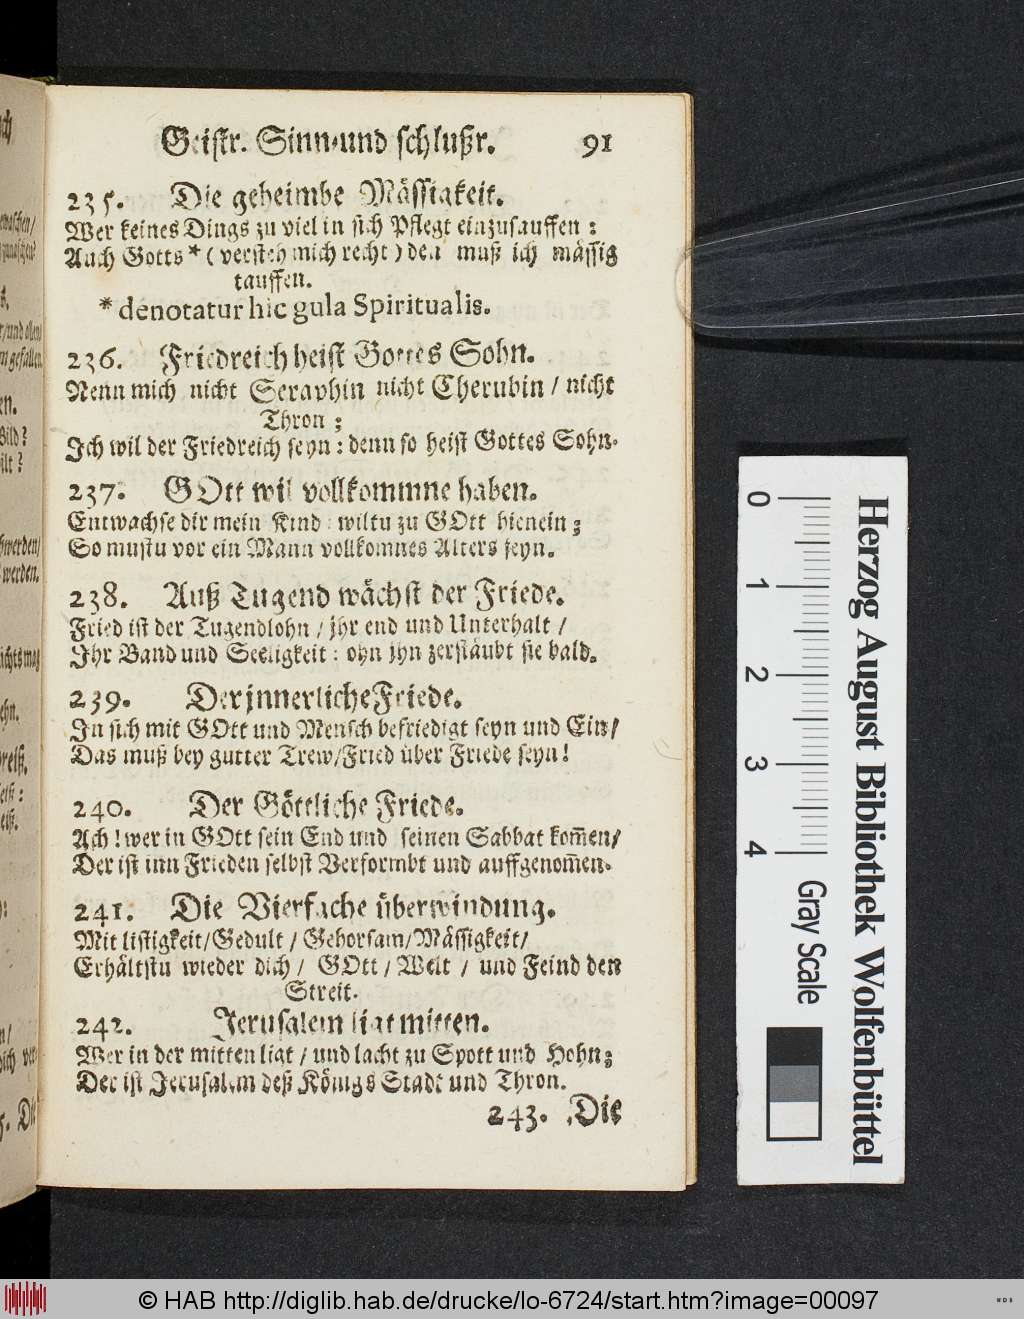 Geistr. Sinn-und schlußr. 91
235. Die geheimbe Mässigkeit.
Wer keines Dings zu viel in sich Pflegt einzusauffen:
Auch Gotts * (versteh mich recht) den muß ich mässig
tauffen.
* denotatur hic gula Spiritualis.
236. Friedreich heist Gottes Sohn.
Nenn mich nicht Seraphin nicht Cherubin / nicht
Thron;
Ich wil der Friedreich seyn: denn so heist Gottes Sohn.
237. GOtt wil vollkommne haben.
Entwachse dir mein Kind: wiltu zu GOtt hienein;
So mustu vor ein Mann vollkomnes Alters seyn.
238. Auß Tugend wächst der Friede.
Fried ist der Tugendlohn / jhr end und Unterhalt /
Ihr Band und Seeligkeit: ohn jhn zerstäubt sie bald.
239. Der jnnerliche Friede.
In sich mit GOtt und Mensch befriedigt seyn und Ein/
Das muß bey gutter Trew/Fried über Friede seyn!
240. Der Göttliche Friede.
Ach! wer in GOtt sein End und seinen Sabbat kom̅en/
Der ist inn Frieden selbst Verformbt und auffgenom̅en.
241. Die Vierfache überwindung.
Mit listigkeit/Gedult / Gehorsam/Mässigkeit/
Erhältstu wieder dich / GOtt / Welt / und Feind den
Streit.
242. Jerusalem ligt mitten.
Wer in der mitten ligt / und lacht zu Spott und Hohn;
Der ist Jerusalem deß Königs Stadt und Thron.
243. Die
0 1 2 3 4
Gray Scale
Herzog August Bibliothek Wolfenbüttel
© HAB http://diglib.hab.de/drucke/lo-6724/start.htm?image=00097